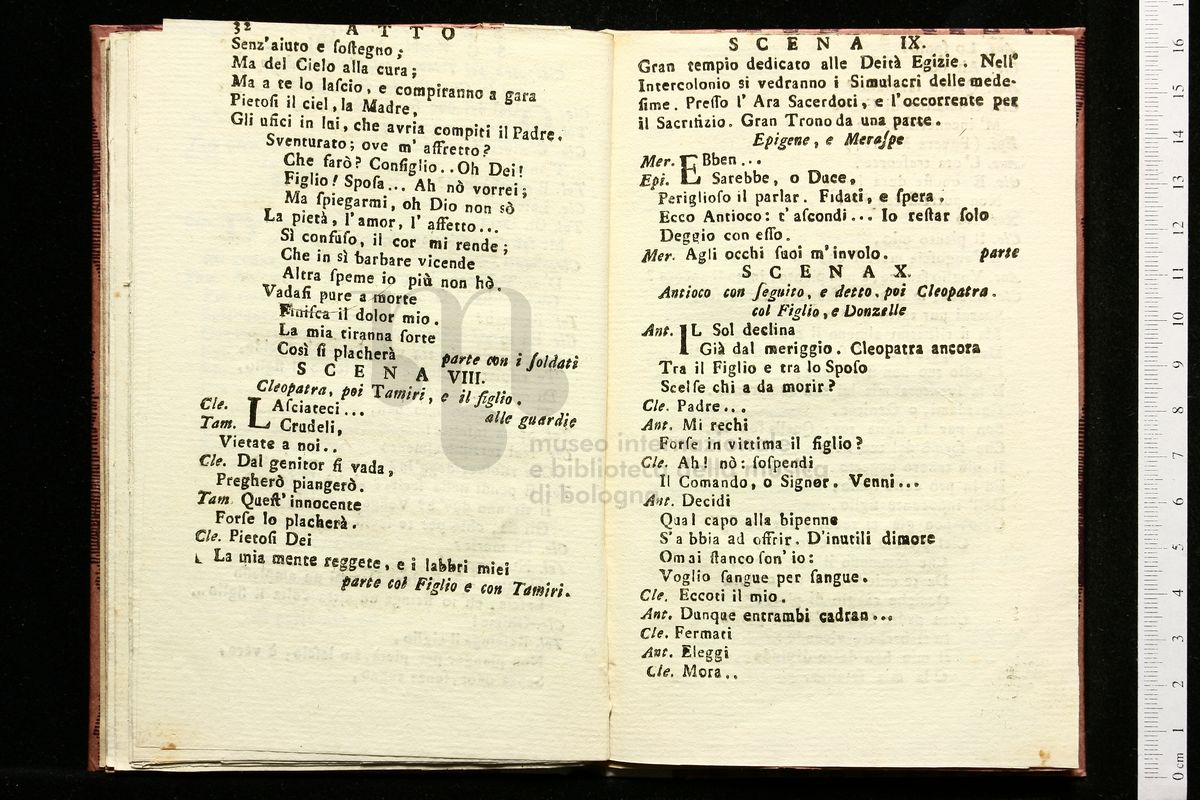 32 ATTO
Senz'aiuto e ſoſtegno;
Ma del Cielo alla cura;
Ma a te lo laſcio, e compiranno a gara
Pietoſi il ciel, la Madre,
Gli ufici in lui, che avria compiti il Padre.
Sventurato; ove m' affretto?
Che farò? Conſiglio.. Oh Dei!
Figlio! Spoſa... Ah nò vorrei;
Ma ſpiegarmi, oh Dio non sò
La pietà, l'amor, l' affetto...
Sì confuſo, il cor mi rende;
Che in sì barbare vicende
Altra ſpeme io più non hò.
Vadaſi pure a morte
Finiſca il dolor mio.
La mia tiranna ſorte
Così ſi placherà parte con i ſoldati
SCENA VIII.
Cleopatra, poi Tamiri, e il figlio.
Cle. LAſciateci... alle guardie
Tam. Crudeli,
Vietate a noi..
Cle. Dal genitor ſi vada,
Pregherò piangerò.
Tam Queſt' innocente
Forſe lo placherà.
Cle. Pietoſi Dei
La mia mente reggete, e i labbri miei
parte col Figlio e con Tamiri.
SCENA IX.
Gran tempio dedicato alle Deità Egizie. Nell'
Intercolonio si vedranno i Simulacri delle mede-
ſime. Preſſo l' Ara Sacerdoti, e l'occorrente per
il Sacrifizio. Gran Trono da una parte.
Epigene, e Meraſpe
Mer. EBben...
Epi. Sarebbe, o Duce,
Periglioſo il parlar. Fidati, e ſpera,
Ecco Antioco: t' aſcondi... Io reſtar ſolo
Deggio con eſſo.
Mer. Agli occhi ſuoi m' involo. parte
SCENA X.
Antioco con ſeguito, e detto, poi Cleopatra.
col Figlio, e Donzelle
Ant. IL Sol declina
Già dal meriggio. Cleopatra ancora
Tra il Figlio e tra lo Spoſo
Scelſe chi a da morir?
Cle. Padre...
Ant. Mi rechi
Forſe in vittima il figlio?
Cle. Ah! nò: ſoſpendi
Il Comando, o Signor. Venni...
Ant. Decidi
Qual capo alla bipenne
S'abbia ad offrir. D'inutili dimore
Omai ſtanco ſon' io:
Voglio ſangue per ſangue.
Cle. Eccoti il mio.
Ant. Dunque entrambi cadran...
Cle. Fermati
Ant. Eleggi
Cle. Mora..
museo internazionale
e biblioteca della musica
di bologna
0 cm 1 2 3 4 5 6 7 8 9 10 11 12 13 14 15 16